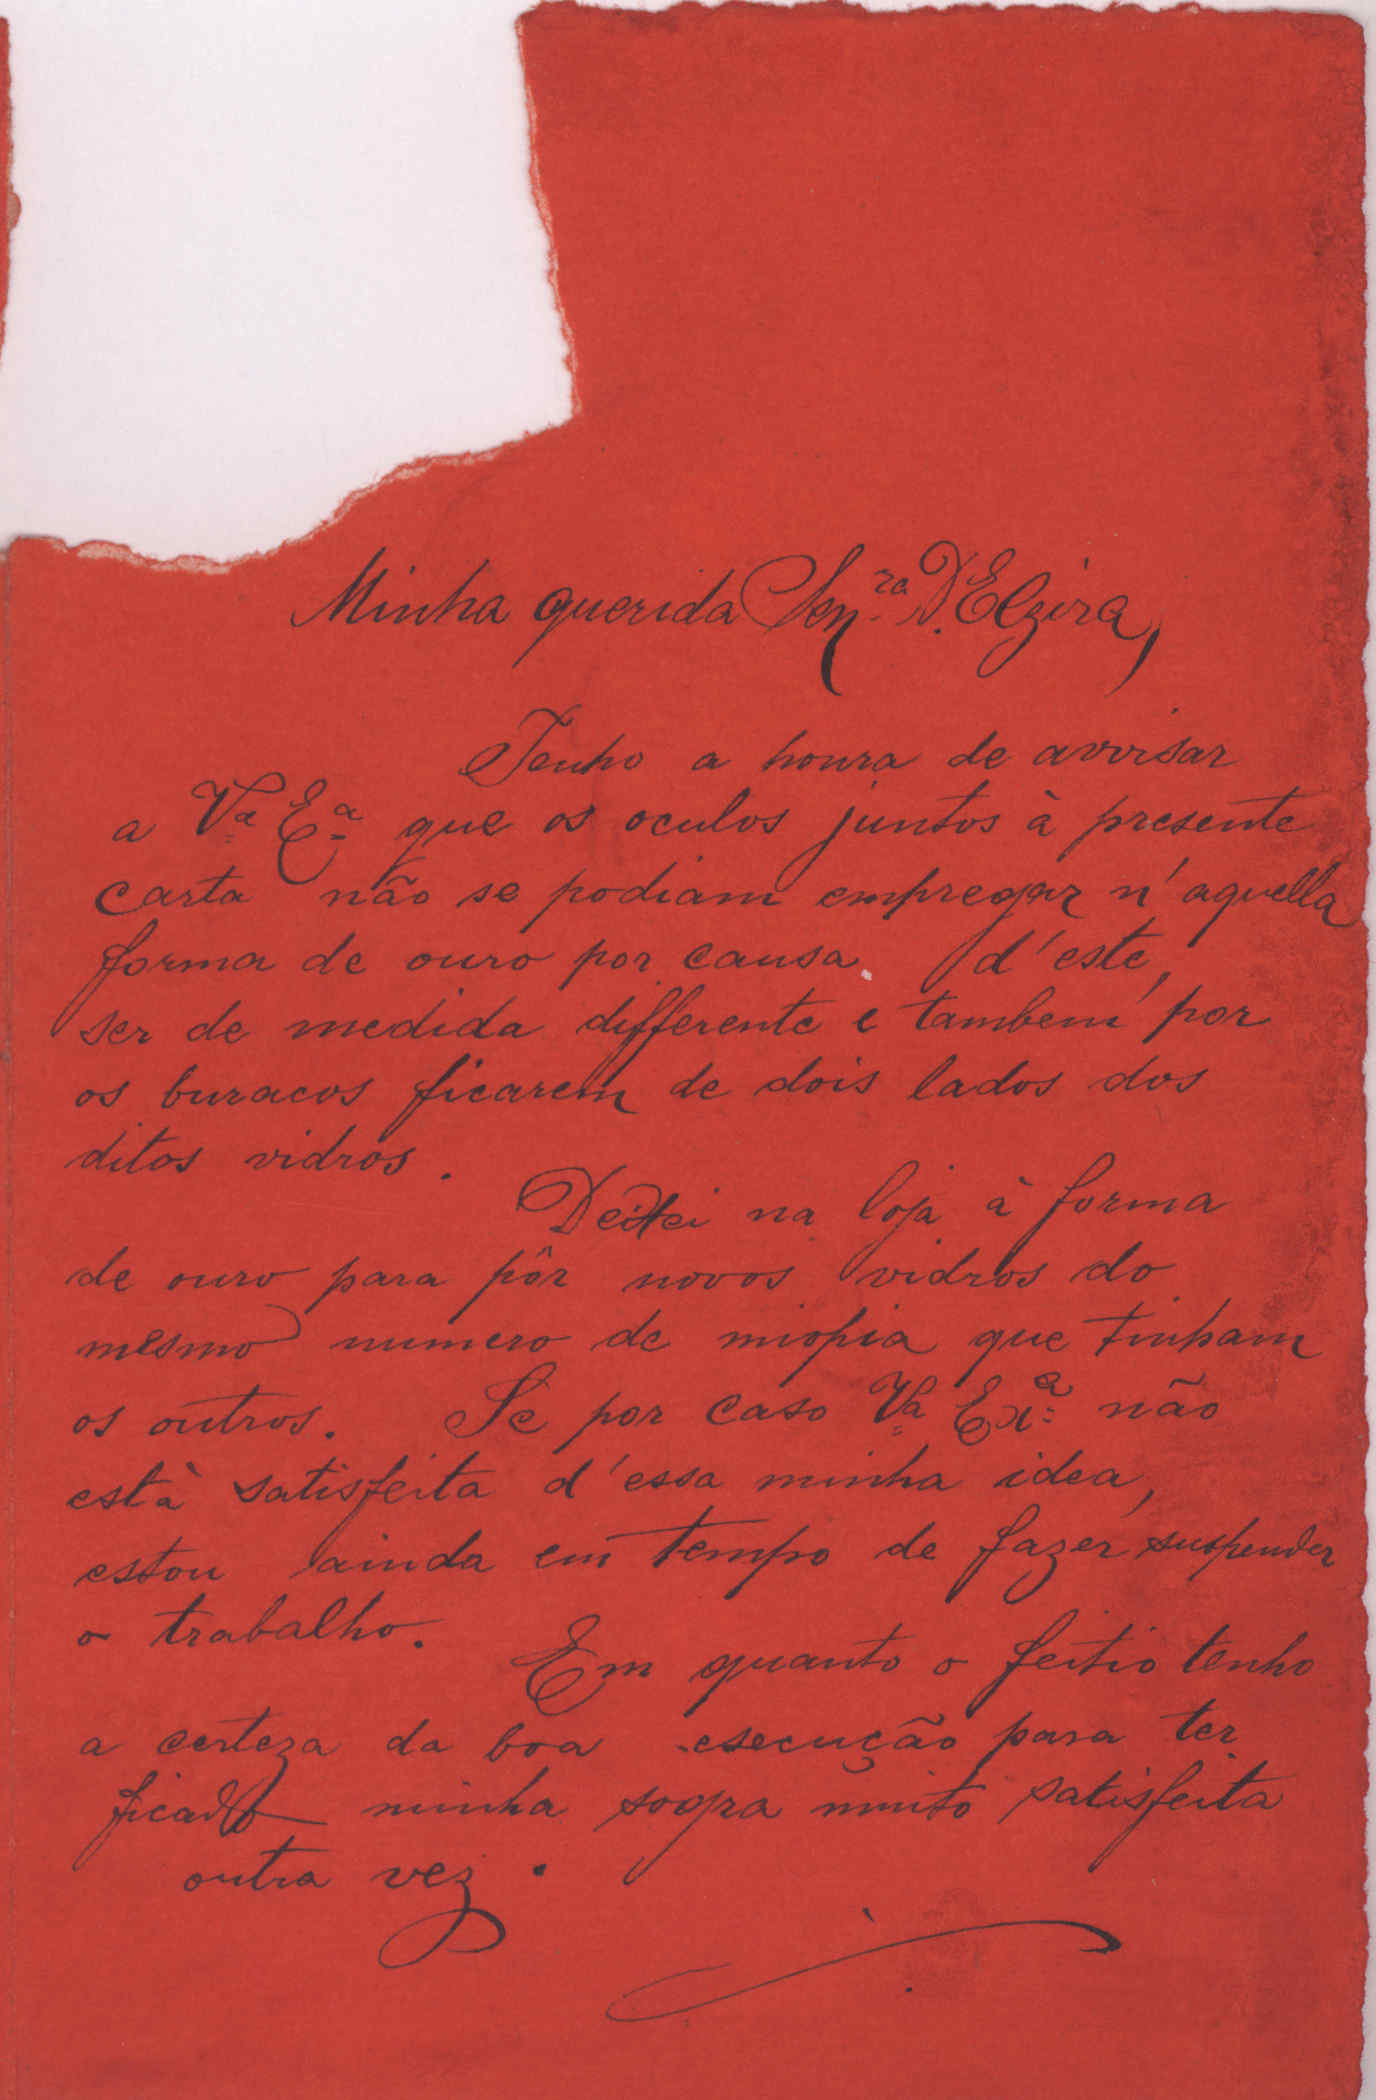 Minha querida Sen.ra D. Elzira,
Tenho a honra de avvisar
a Va Ea que os oculos juntos à presente
carta não se podiam empregar n'aquella
forma de ouro por causa d'este,
ser de medida differente e tambem por
os buracos ficarem de dois lados dos
ditos vidros.
Deitei na loja à forma
de ouro para pôr novos vidros do
mesmo numero de miopia que tinham
os outros. Se por caso Va Exa não
està satisfeita d'essa minha idea,
estou ainda em tempo de fazer suspender
o trabalho.
Em quanto o feitio tenho
a certeza da boa esecução para ter
ficado minha sogra muito satisfeita
outra vez.